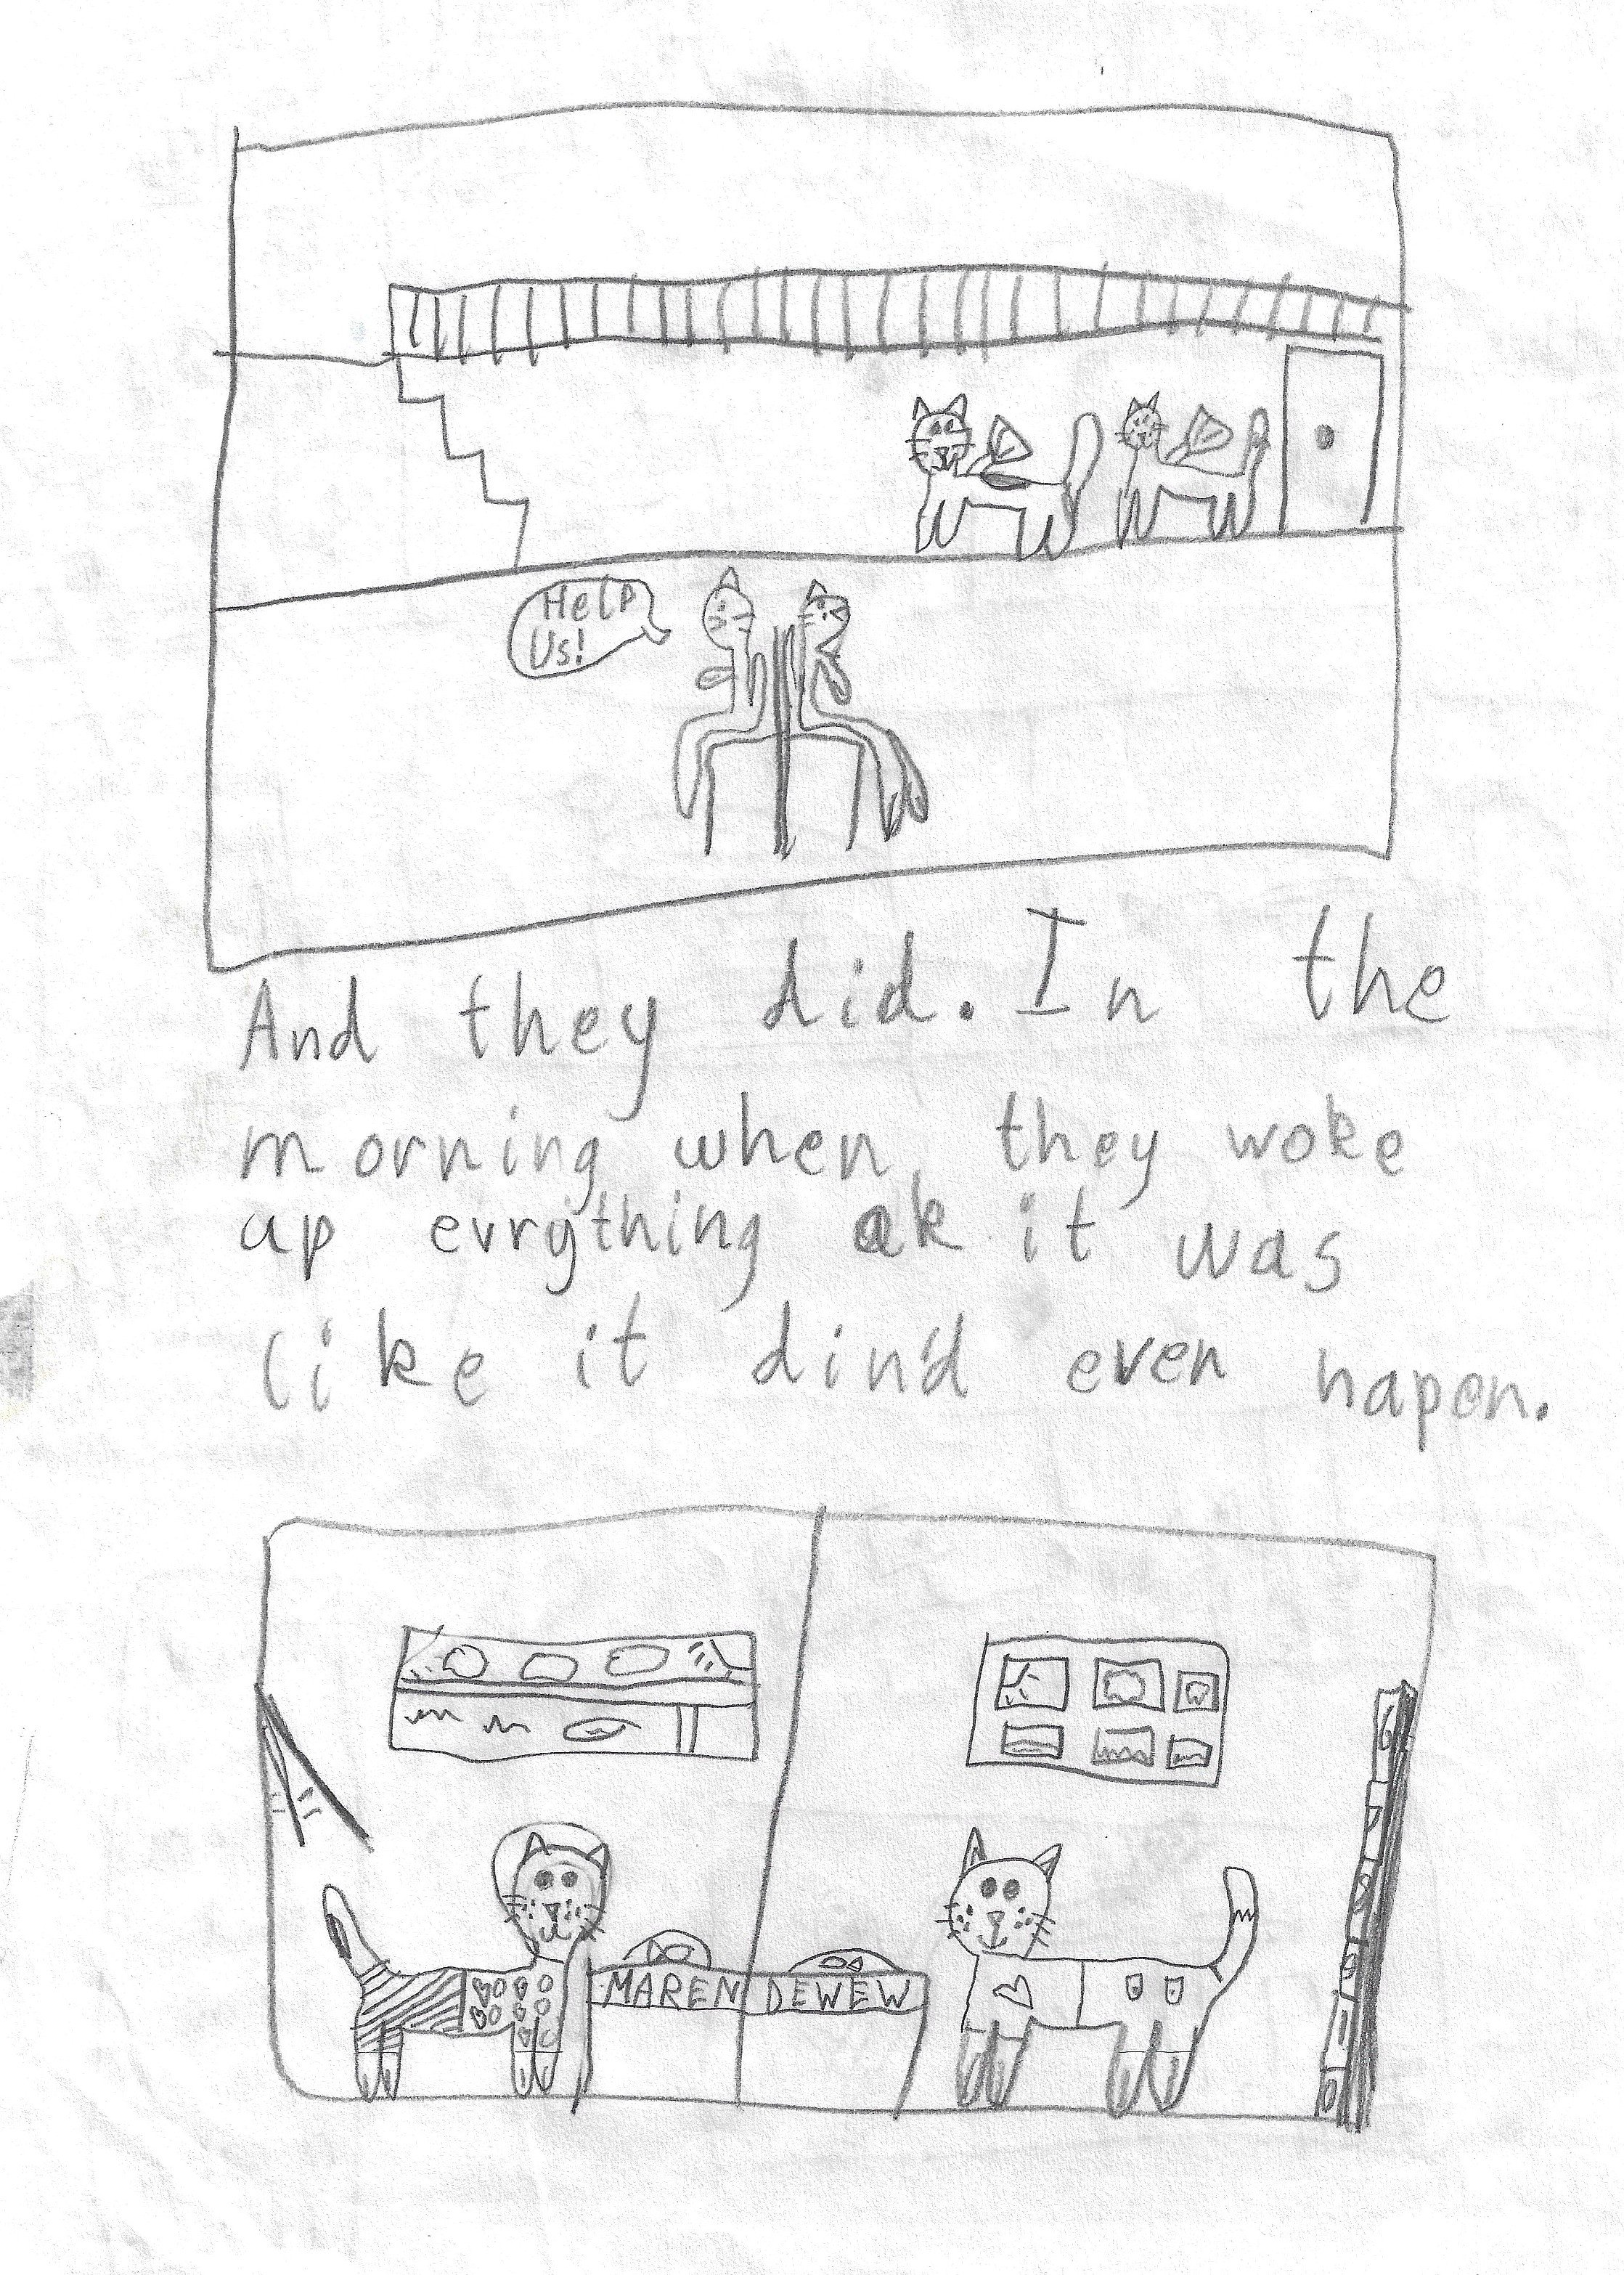 Help
Us!
And they did. In the
morning when they woke
up evrything ok it was
like it din'd even hapen.
MAREN DEWEW